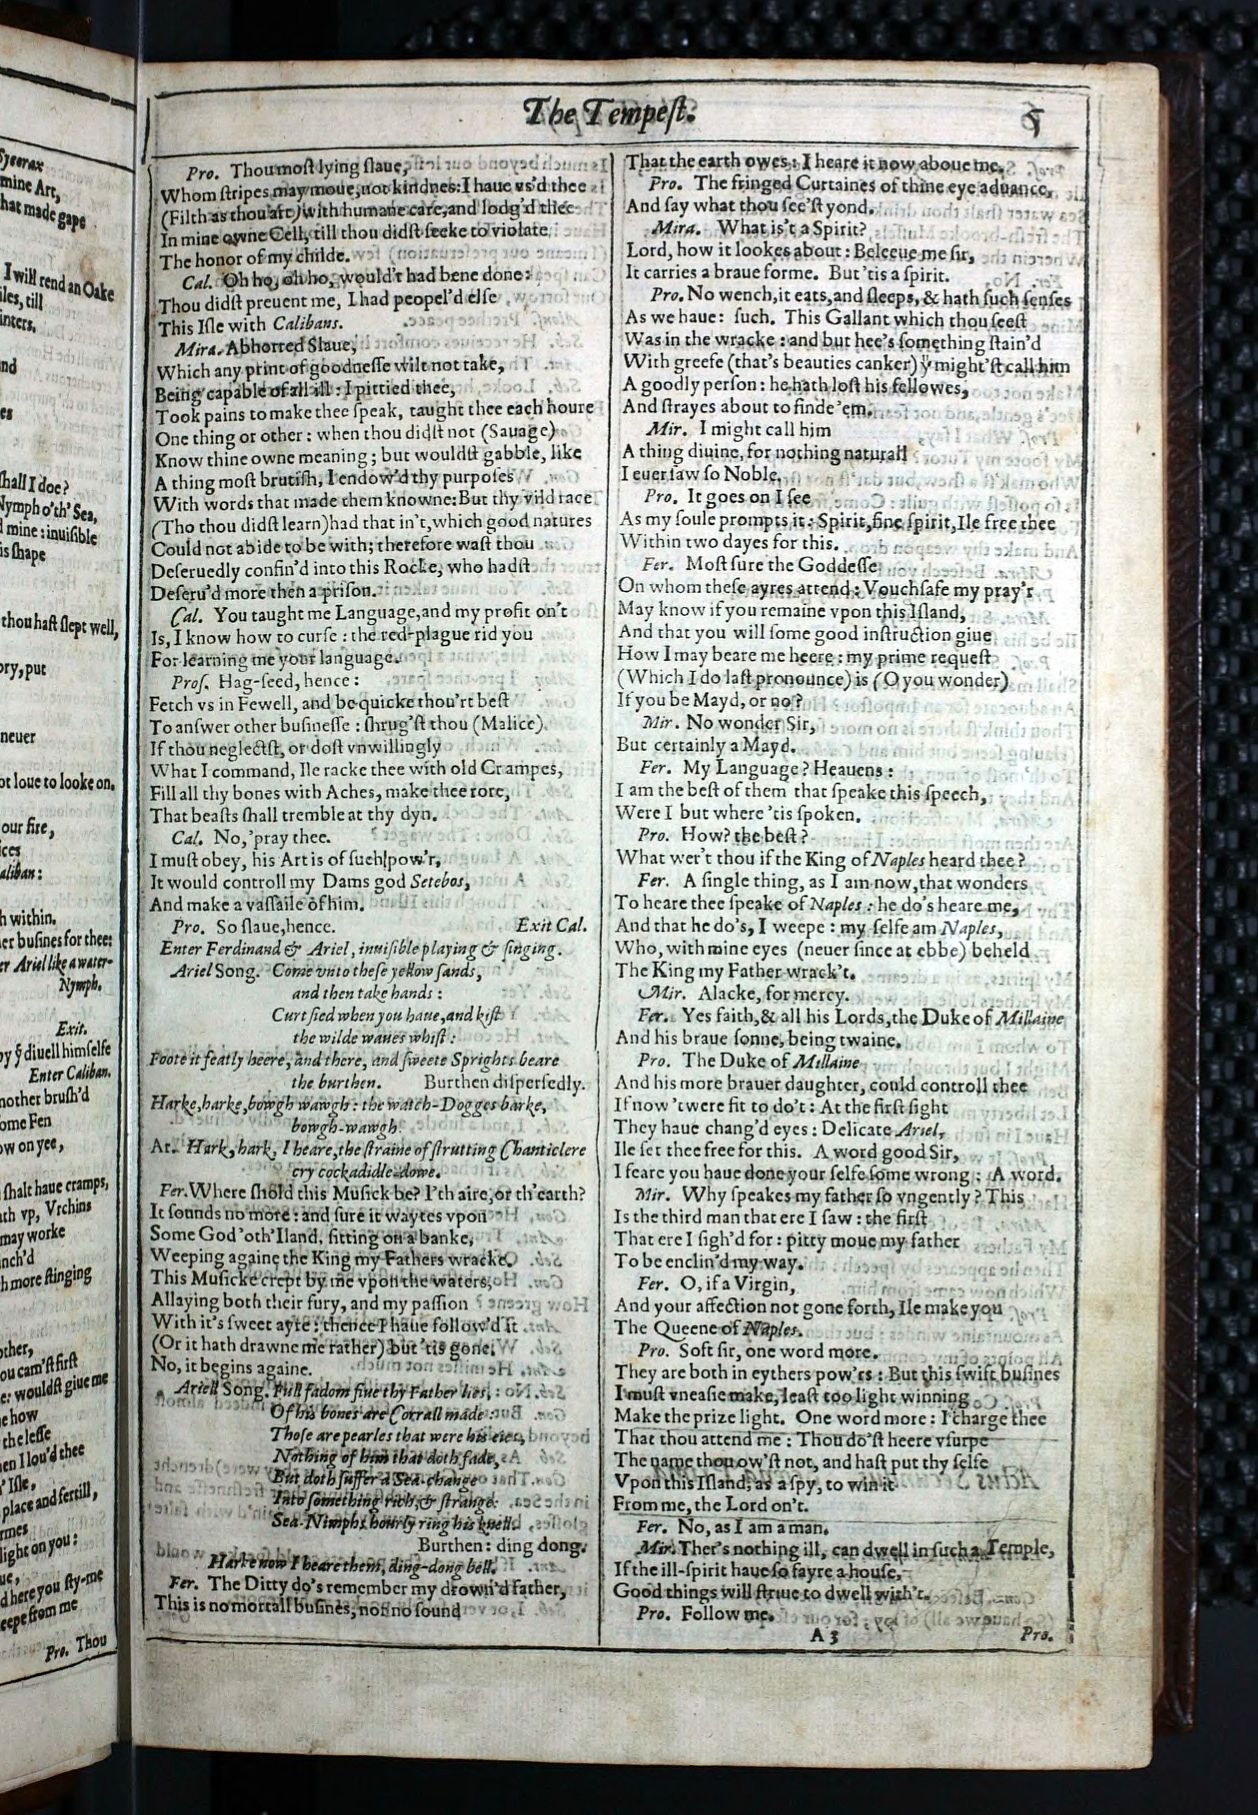 Sycorax
mine Art,
hat made gape
I will rend an Oake
iles, till
inters.
nd
es
ſhall I doe?
Nymph o'th' Sea,
d mine: inuiſible
is ſhape
thou haſt ſlept well,
ory, put
neuer
ot loue to looke on.
our fire,
ices
aliban:
h within.
er buſines for thee:
er Ariel like a water-
Nymph.
Exit.
by ẙ diuell himſelfe
Enter Caliban.
mother bruſh'd
ome Fen
ow on yee,
ſhalt haue cramps,
ath vp, Vrchins
may worke
inch'd
h more ſtinging
other,
ou cam'ſt firſt
e: wouldſt giue me
e how
the leſſe
en I lou'd thee
' Iſle,
place and fertill,
rmes
light on you:
ue,
d here you ſty-me
eepe from me
Pro. Thou
The Tempeſt. 5
Pro. Thou moſt lying ſlaue,
Whom ſtripes may moue, not kindnes: I haue vs'd thee
(Filth as thou art) with humane care, and lodg'd thee
In mine owne Cell, till thou didſt ſeeke to violate
The honor of my childe.
Cal. Oh ho, oh ho, would't had bene done:
Thou didſt preuent me, I had peopel'd elſe
This Iſle with Calibans.
Mira. Abhorred Slaue,
Which any print of goodneſſe wilt not take,
Being capable of all ill: I pittied thee,
Took pains to make thee ſpeak, taught thee each houre
One thing or other: when thou didſt not (Sauage)
Know thine owne meaning; but wouldſt gabble, like
A thing moſt brutiſh, I endow'd thy purpoſes
With words that made them knowne: But thy vild race
(Tho thou didſt learn) had that in't, which good natures
Could not abide to be with; therefore waſt thou
Deſeruedly confin'd into this Rocke, who hadſt
Deſeru'd more then a priſon.
Cal. You taught me Language, and my profit on't
Is, I know how to curſe: the red-plague rid you
For learning me your language.
Proſ. Hag-ſeed, hence:
Fetch vs in Fewell, and be quicke thou'rt beſt
To anſwer other buſineſſe: ſhrug'ſt thou (Malice)
If thou neglectſt, or doſt vnwillingly
What I command, Ile racke thee with old Crampes,
Fill all thy bones with Aches, make thee rore,
That beaſts ſhall tremble at thy dyn.
Cal. No, 'pray thee.
I muſt obey, his Art is of ſuch pow'r,
It would controll my Dams god Setebos,
And make a vaſſaile of him.
Pro. So ſlaue, hence. Exit Cal.
Enter Ferdinand & Ariel, inuiſible playing & ſinging.
Ariel Song. Come vnto theſe yellow ſands,
and then take hands:
Curtſied when you haue, and kiſt
the wilde waues whiſt:
Foote it featly heere, and there, and ſweete Sprights beare
the burthen. Burthen diſperſedly.
Harke, harke, bowgh wawgh: the watch-Dogges barke,
bowgh-wawgh.
Ar. Hark, hark, I heare, the ſtraine of ſtrutting Chanticlere
cry cockadidle-dowe.
Fer. Where ſhold this Muſick be? I'th aire, or th'earth?
It ſounds no more: and ſure it waytes vpon
Some God 'oth'Iland, ſitting on a banke,
Weeping againe the King my Fathers wracke.
This Muſicke crept by me vpon the waters,
Allaying both their fury, and my paſſion
With it's ſweet ayre: thence I haue follow'd it
(Or it hath drawne me rather) but 'tis gone.
No, it begins againe.
Ariell Song. Full fadom fiue thy Father lies,
Of his bones are Corrall made:
Thoſe are pearles that were his eies,
Nothing of him that doth fade,
But doth ſuffer a Sea-change
Into ſomething rich, & ſtrange:
Sea-Nimphs hourly ring his knell.
Burthen: ding dong.
Harke now I heare them, ding-dong bell.
Fer. The Ditty do's remember my drown'd father,
This is no mortall buſines, nor no ſound
That the earth owes: I heare it now aboue me.
Pro. The fringed Curtaines of thine eye aduance,
And ſay what thou ſee'ſt yond.
Mira. What is't a Spirit?
Lord, how it lookes about: Beleeue me ſir,
It carries a braue forme. But 'tis a ſpirit.
Pro. No wench, it eats, and ſleeps, & hath ſuch ſenſes
As we haue: ſuch. This Gallant which thou ſeeſt
Was in the wracke: and but hee's ſomething ſtain'd
With greefe (that's beauties canker) ẙ might'ſt call him
A goodly perſon: he hath loſt his fellowes,
And ſtrayes about to finde 'em.
Mir. I might call him
A thing diuine, for nothing naturall
I euer ſaw ſo Noble.
Pro. It goes on I ſee
As my ſoule prompts it: Spirit, fine ſpirit, Ile free thee
Within two dayes for this.
Fer. Moſt ſure the Goddeſſe
On whom theſe ayres attend: Vouchſafe my pray'r
May know if you remaine vpon this Iſland,
And that you will ſome good inſtruction giue
How I may beare me heere: my prime requeſt
(Which I do laſt pronounce) is (O you wonder)
If you be Mayd, or no?
Mir. No wonder Sir,
But certainly a Mayd.
Fer. My Language? Heauens:
I am the beſt of them that ſpeake this ſpeech,
Were I but where 'tis ſpoken.
Pro. How? the beſt?
What wer't thou if the King of Naples heard thee?
Fer. A ſingle thing, as I am now, that wonders
To heare thee ſpeake of Naples: he do's heare me,
And that he do's, I weepe: my ſelfe am Naples,
Who, with mine eyes (neuer ſince at ebbe) beheld
The King my Father wrack't.
Mir. Alacke, for mercy.
Fer. Yes faith, & all his Lords, the Duke of Millaine
And his braue ſonne, being twaine.
Pro. The Duke of Millaine
And his more brauer daughter, could controll thee
If now 'twere fit to do't: At the firſt ſight
They haue chang'd eyes: Delicate Ariel,
Ile ſet thee free for this. A word good Sir,
I feare you haue done your ſelfe ſome wrong: A word.
Mir. Why ſpeakes my father ſo vngently? This
Is the third man that ere I ſaw: the firſt
That ere I ſigh'd for: pitty moue my father
To be enclin'd my way.
Fer. O, if a Virgin,
And your affection not gone forth, Ile make you
The Queene of Naples.
Pro. Soft ſir, one word more.
They are both in eythers pow'rs: But this ſwift buſines
I muſt vneaſie make, leaſt too light winning
Make the prize light. One word more: I charge thee
That thou attend me: Thou do'ſt heere vſurpe
The name thou ow'ſt not, and haſt put thy ſelfe
Vpon this Iſland, as a ſpy, to win it
From me, the Lord on't.
Fer. No, as I am a man.
Mir. Ther's nothing ill, can dwell in ſuch a Temple,
If the ill-ſpirit haue ſo fayre a houſe,
Good things will ſtriue to dwell with't.
Pro. Follow me.
A 3 Pro.